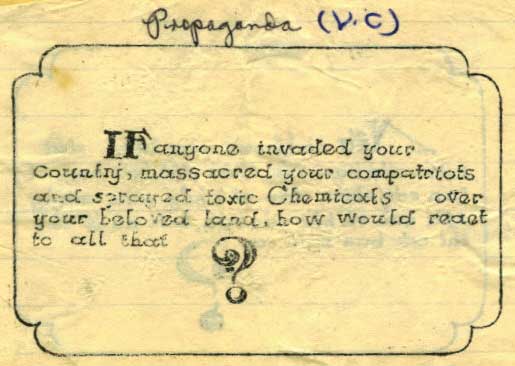 Propaganda (V.C)
IF anyone invaded your
Country, massacred your compatriots
and sprayed toxic Chemicals over
your beloved land, how would react
to all that
?